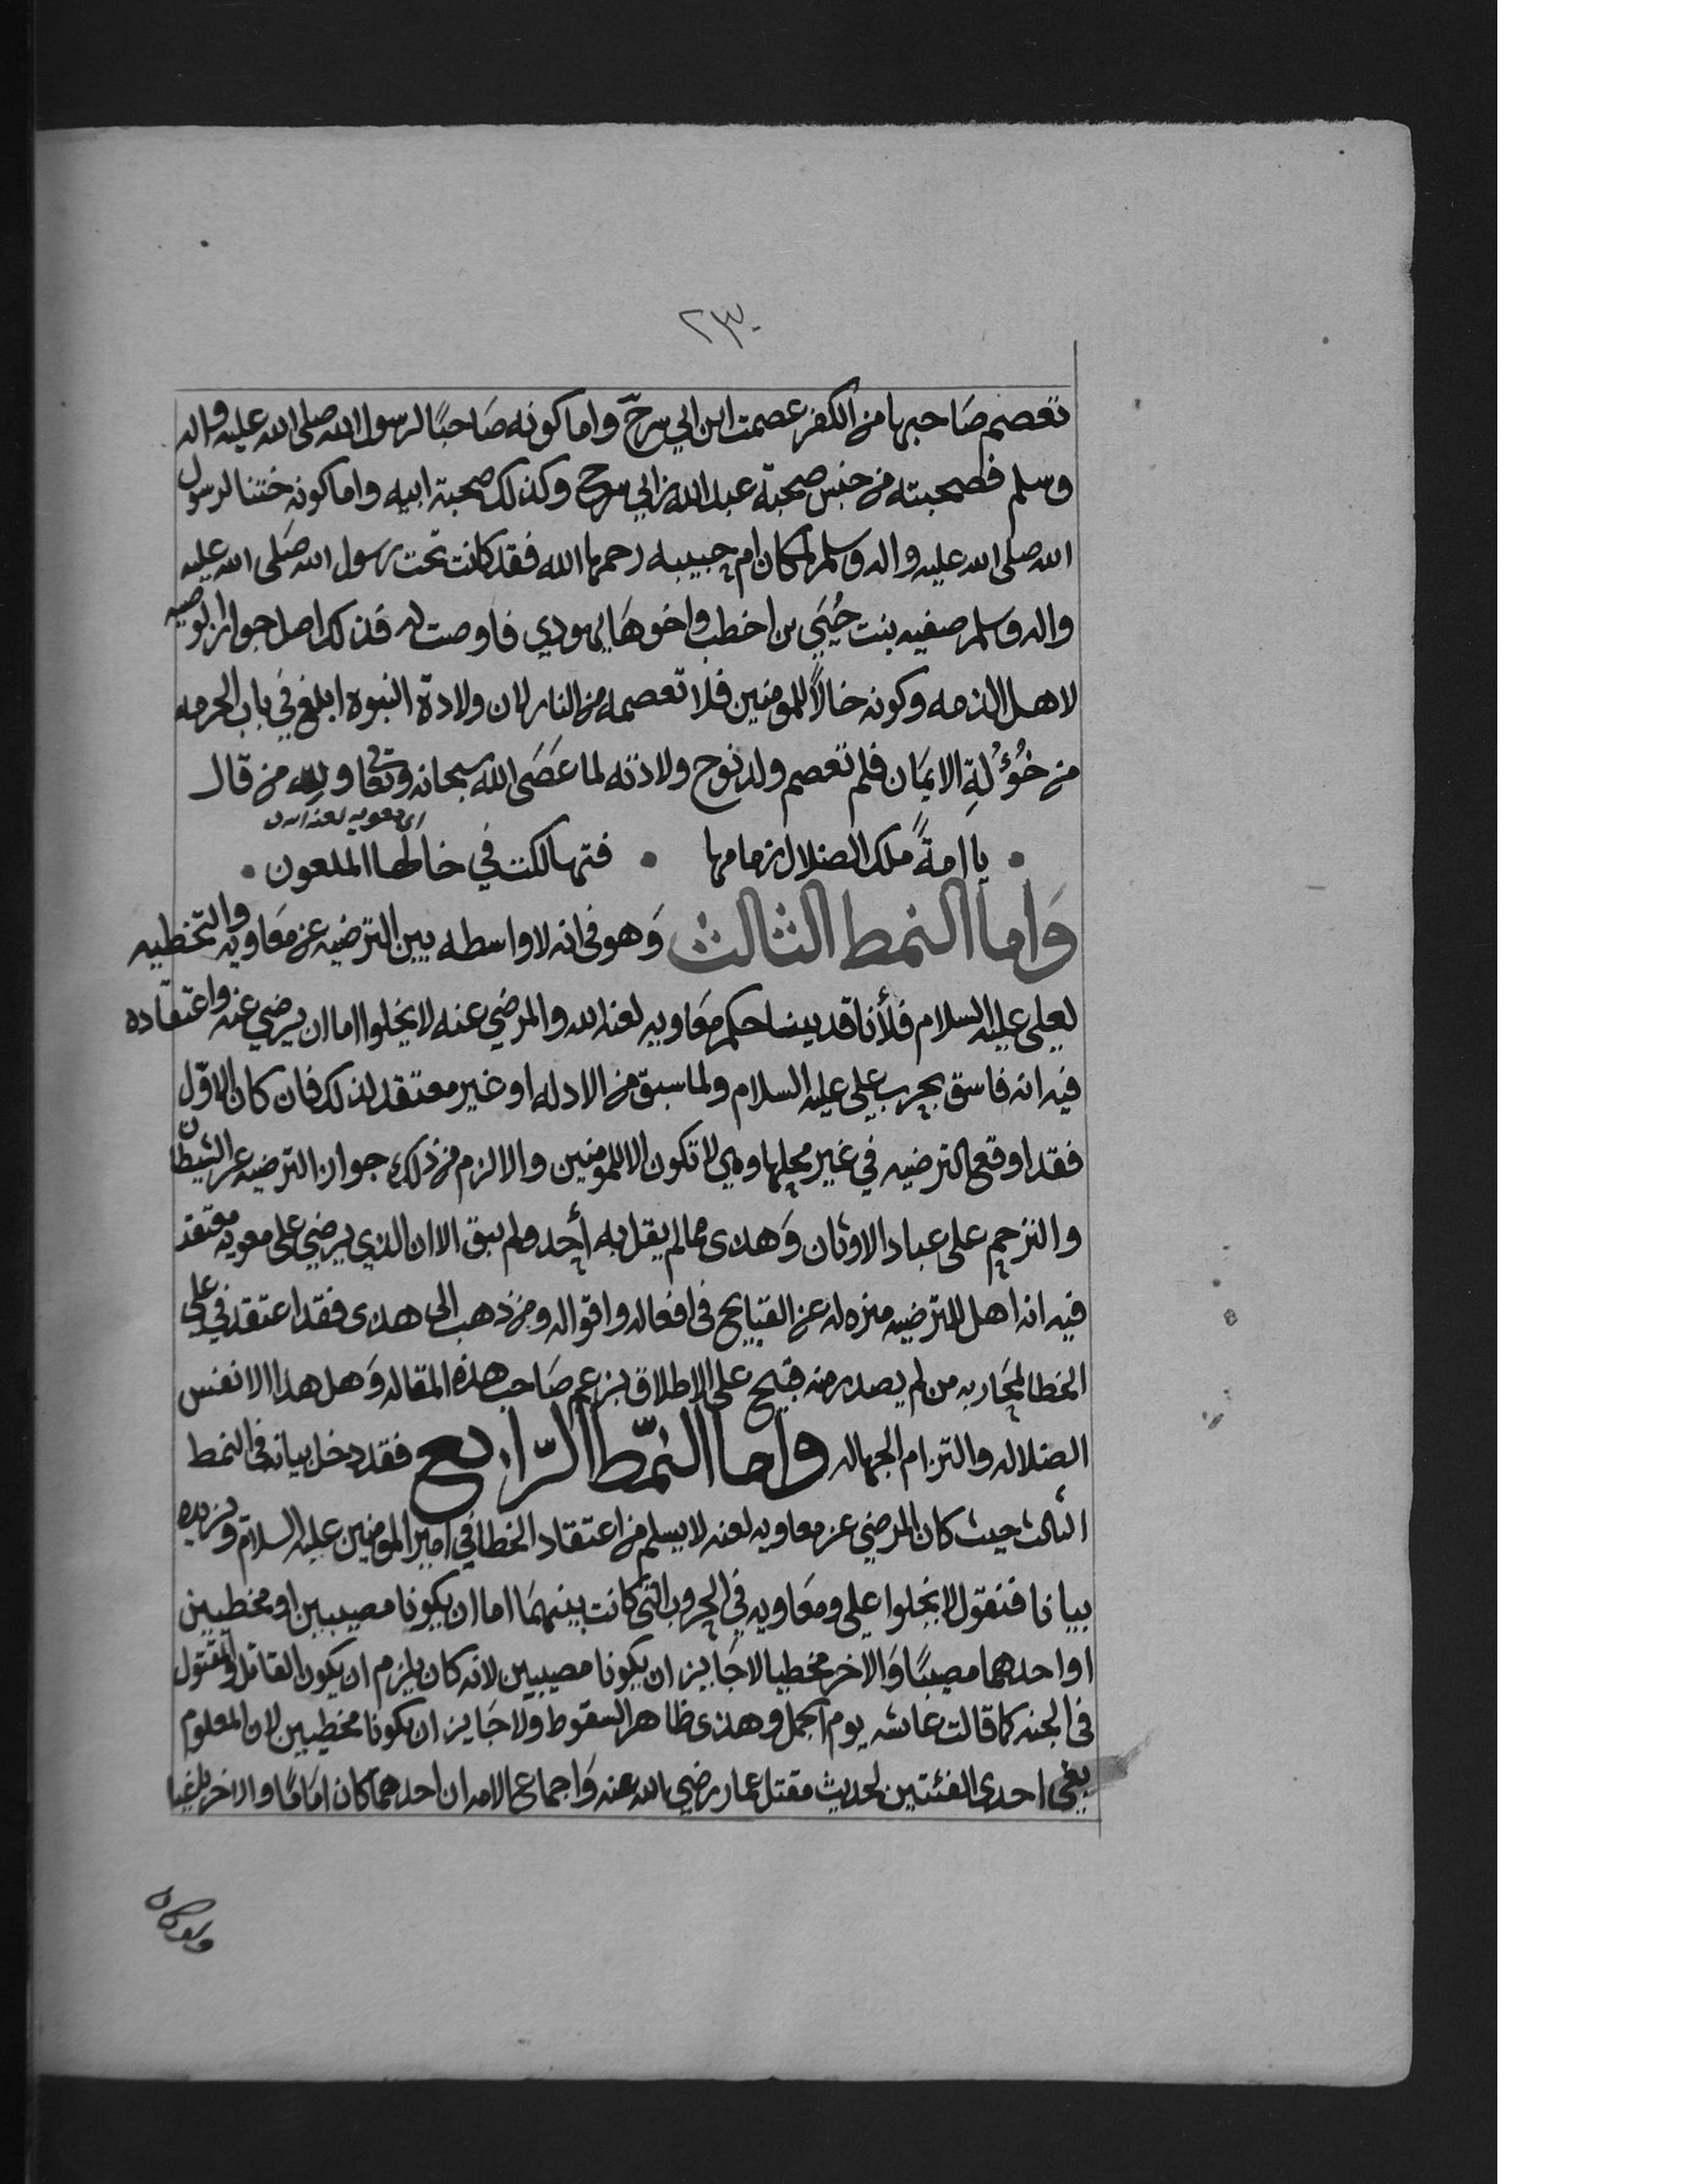 ٢٣٠
تعصم صاحبها من الكفر عصمت ابن ابي سرح واما كونه صَاحبًا لرسول الله صلى الله عليه واله
وسلم فصحبته من جنس صحبة عبد الله بن ابي سرح وكذلك صحبة ابيه واما كونه ختنا لرسول
الله صلى الله عليه واله وسلم لمكان ام حبيبه رحمها الله فقد كانت تحت رسول الله صَلى الله عليه
واله وسلم صفيه بنت حُيَي بن اخطب واخوهَا يهودي فاوصت له فذلك اصل جواز الوصيه
لاهل الذمه وكونه خالاً للمومنين فلا تعصمه من النار لان ولادة النبوه ابلغ في باب الحرمه
من خُؤُلةِ الايمَان فلم تعصم ولد نوح ولادته لما عَصَى الله سبحانه وتعا ولله من قال
اي معويه لعنه الله
يا امةً ملك الضلال زمامها • فتهالكت في خالها الملعون •
وَاما النمط الثالث وَهو في انه لا واسطه بين الترضيه عن معَاويه والتخطيه
لعلي عليه السلام فلأنا قد بينا حكم معَاويه لعنه الله والمرضي عنه لا يخلوا اما ان يرضي عنه واعتقاده
فيه انه فاسق بحرب علي عليه السلام ولما سبق من الادله او غير معتقد لذلك فان كان الاوّل
فقد اوقع الترضيه في غير محلها وهي لا تكون الا للمومنين والا لزم من ذلك جواز الترضيه عن الشيطان
والترحم على عباد الاوثان وَهذى مما لم يقل به أحد ولم يبق الا ان الذي يرضي على معويه معتقد
فيه انه اهل للترضيه منزه له عن القبايح في افعاله واقواله ومن ذهب الى هذى فقد اعتقد في علي
الخطا لمحَاربه من لم يصدر منه قبيح على الاطلاق بزعم صَاحب هذه المقاله وَهل هذا الا نفس
الضلاله والتزام الجهاله واما النمّط الرّابع فقد دخل بيانه في النمط
الثالث حيث كان المرضي عن معاويه لعنه لا يسلم من اعتقاد الخطا في امير المومنين عليه السلام ونزيده
بيانا فنقول لا يخلوا علي ومعَاويه في الحروب التي كانت بينهمَا اما ان يكونا مصيبين او مخطيين
او احدهما مصيبًا وَالاخر مخطيا لا جَايز ان يكونا مصيبين لانه كان يلزم ان يكون القاتل والمقتول
في الجنه كما قالت عائشه يوم الجمل وهذى ظاهر السقوط ولا جَايز ان يكونا مخطيين لان المعلوم
بغي احدى الفئتين لحديث مقتل عمار رضي الله عنه وَاجماع الامه ان احدهما كان امَامًا والاخر باغيا